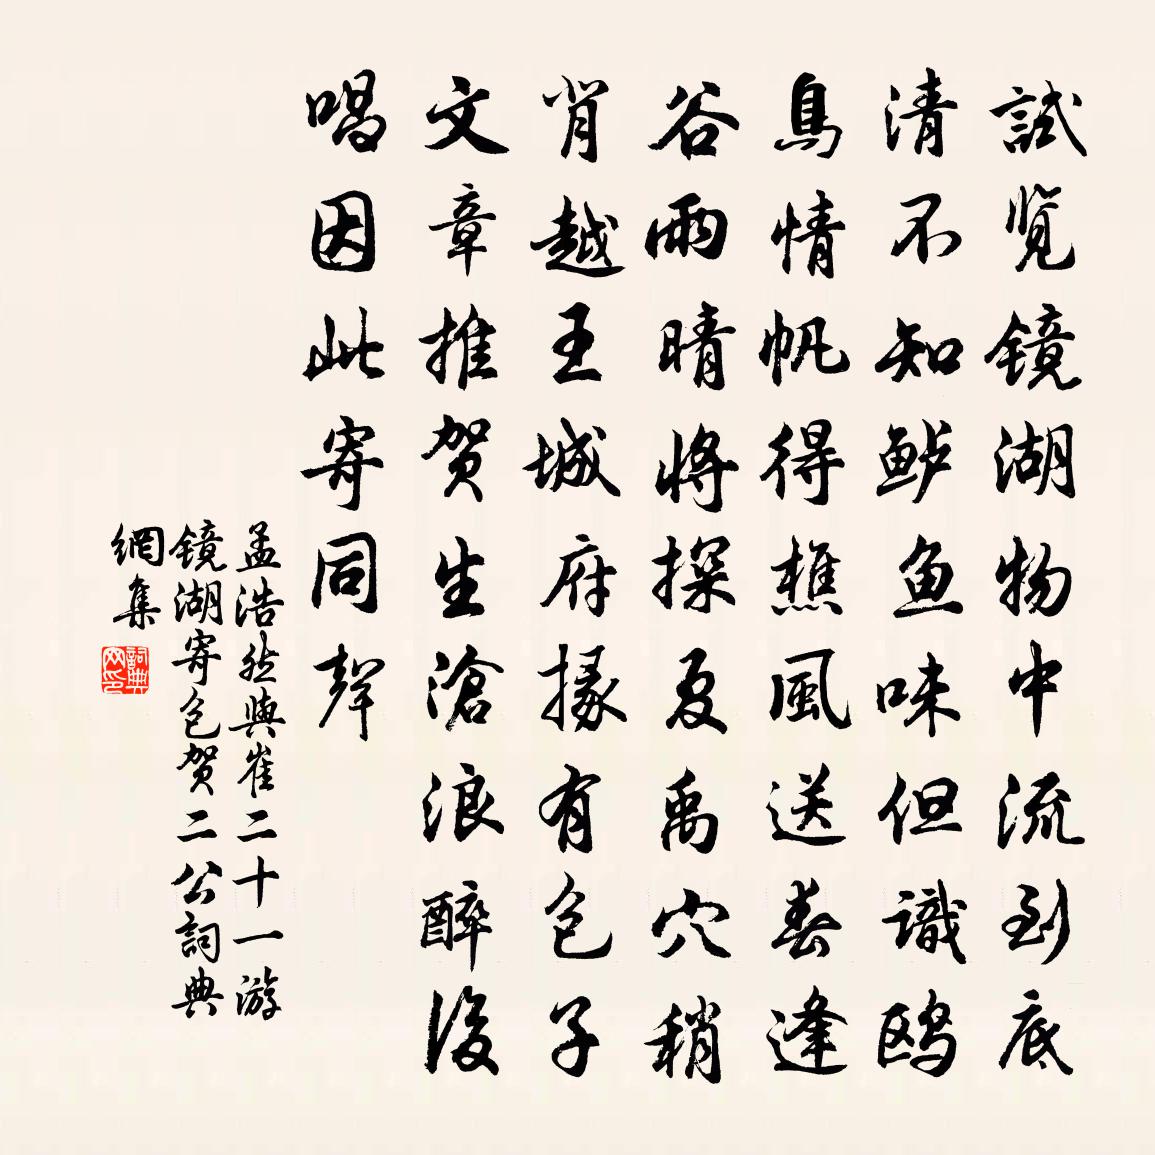 試览镜湖物中流到底
清不知鲈鱼味但識鸥
鳥情帆得樵風送春逢
谷雨晴將探夏禹穴稍
肖越王城府掾有包子
文章推贺生滄浪醉後
唱因此寄同聲
孟浩然與崔二十一游
镜湖寄包贺二公詞典
網集
詞典
网印